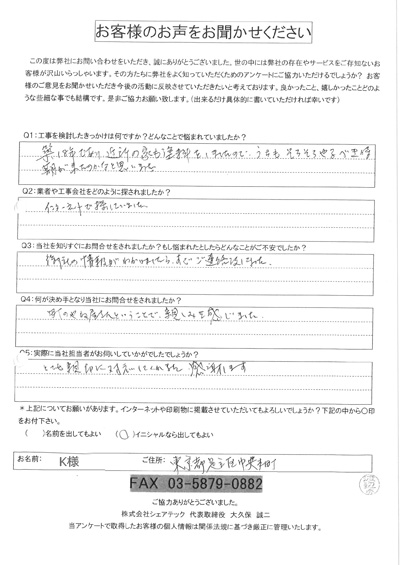 お客様のお声をお聞かせください
この度は弊社にお問い合わせをいただき、誠にありがとうございました。世の中には弊社の存在やサービスをご存知ないお
客様が沢山いらっしゃいます。その方たちに弊社をよく知っていただくためのアンケートにご協力いただけるでしょうか? お客
様のご意見をお聞かせいただき今後の活動に反映させていただきたいと考えております。良かったこと、嬉しかったことどのよ
うな些細な事でも結構です。是非ご協力お願い致します。(出来るだけ具体的に書いていただければ幸いです)
Q1:工事を検討したきっかけは何ですか?どんなことで悩まれていましたか?
築18年たち、近所の家も塗料をしてたので、うちもそろそろやるべき時
期が来たのかなと思いました
Q2:業者や工事会社をどのように探されましたか?
インターネットで探していました
Q3:当社を知りすぐにお問合せをされましたか?もし悩まれたとしたらどんなことがご不安でしたか?
御社の情報がわかりましたら、すぐご連絡しました。
Q4:何が決め手となり当社にお問合せをされましたか?
町のやね屋さんということで、親しみを感じました。
Q5:実際に当社担当者がお伺いしていかがでしたでしょうか?
とても親切に対応してくれました 感謝します
*上記についてお願いがあります。インターネットや印刷物に掲載させていただいてもよろしいでしょうか?下記の中から○印
をお付下さい。
( )名前を出してもよい (○)イニシャルなら出してもよい
お名前: K様 ご住所: 東京都足立区中央本町
FAX 03-5879-0882
ご協力ありがとうございました。
株式会社シェアテック 代表取締役 大久保 誠二
当アンケートで取得したお客様の個人情報は関係法規に基づき厳正に管理いたします。